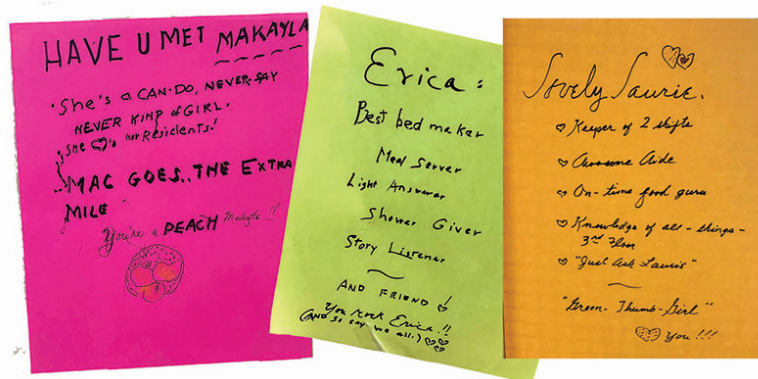 HAVE U MET MAKAYLA
• She's a CAN-DO, NEVER-SAY
NEVER KIND of GIRL.
• She ♡'s her Residents!
MAC GOES.. THE EXTRA
MILE
You're a PEACH Makayla!!
Erica:
Best bed maker
Meal Server
Light Answerer
Shower Giver
Story Listener
AND FRIEND!
You Rock Erica.!!
(AND so say we all.) ♡♡♡♡
Lovely Laurie.
♡ Keeper of 2 shifts
♡ Awesome Aide
♡ On-time food guru
♡ Knowledge of all-things-
3rd Floor
♡ "Just Ask Laurie"
"Green-Thumb-Girl"
♡♡ You!!!